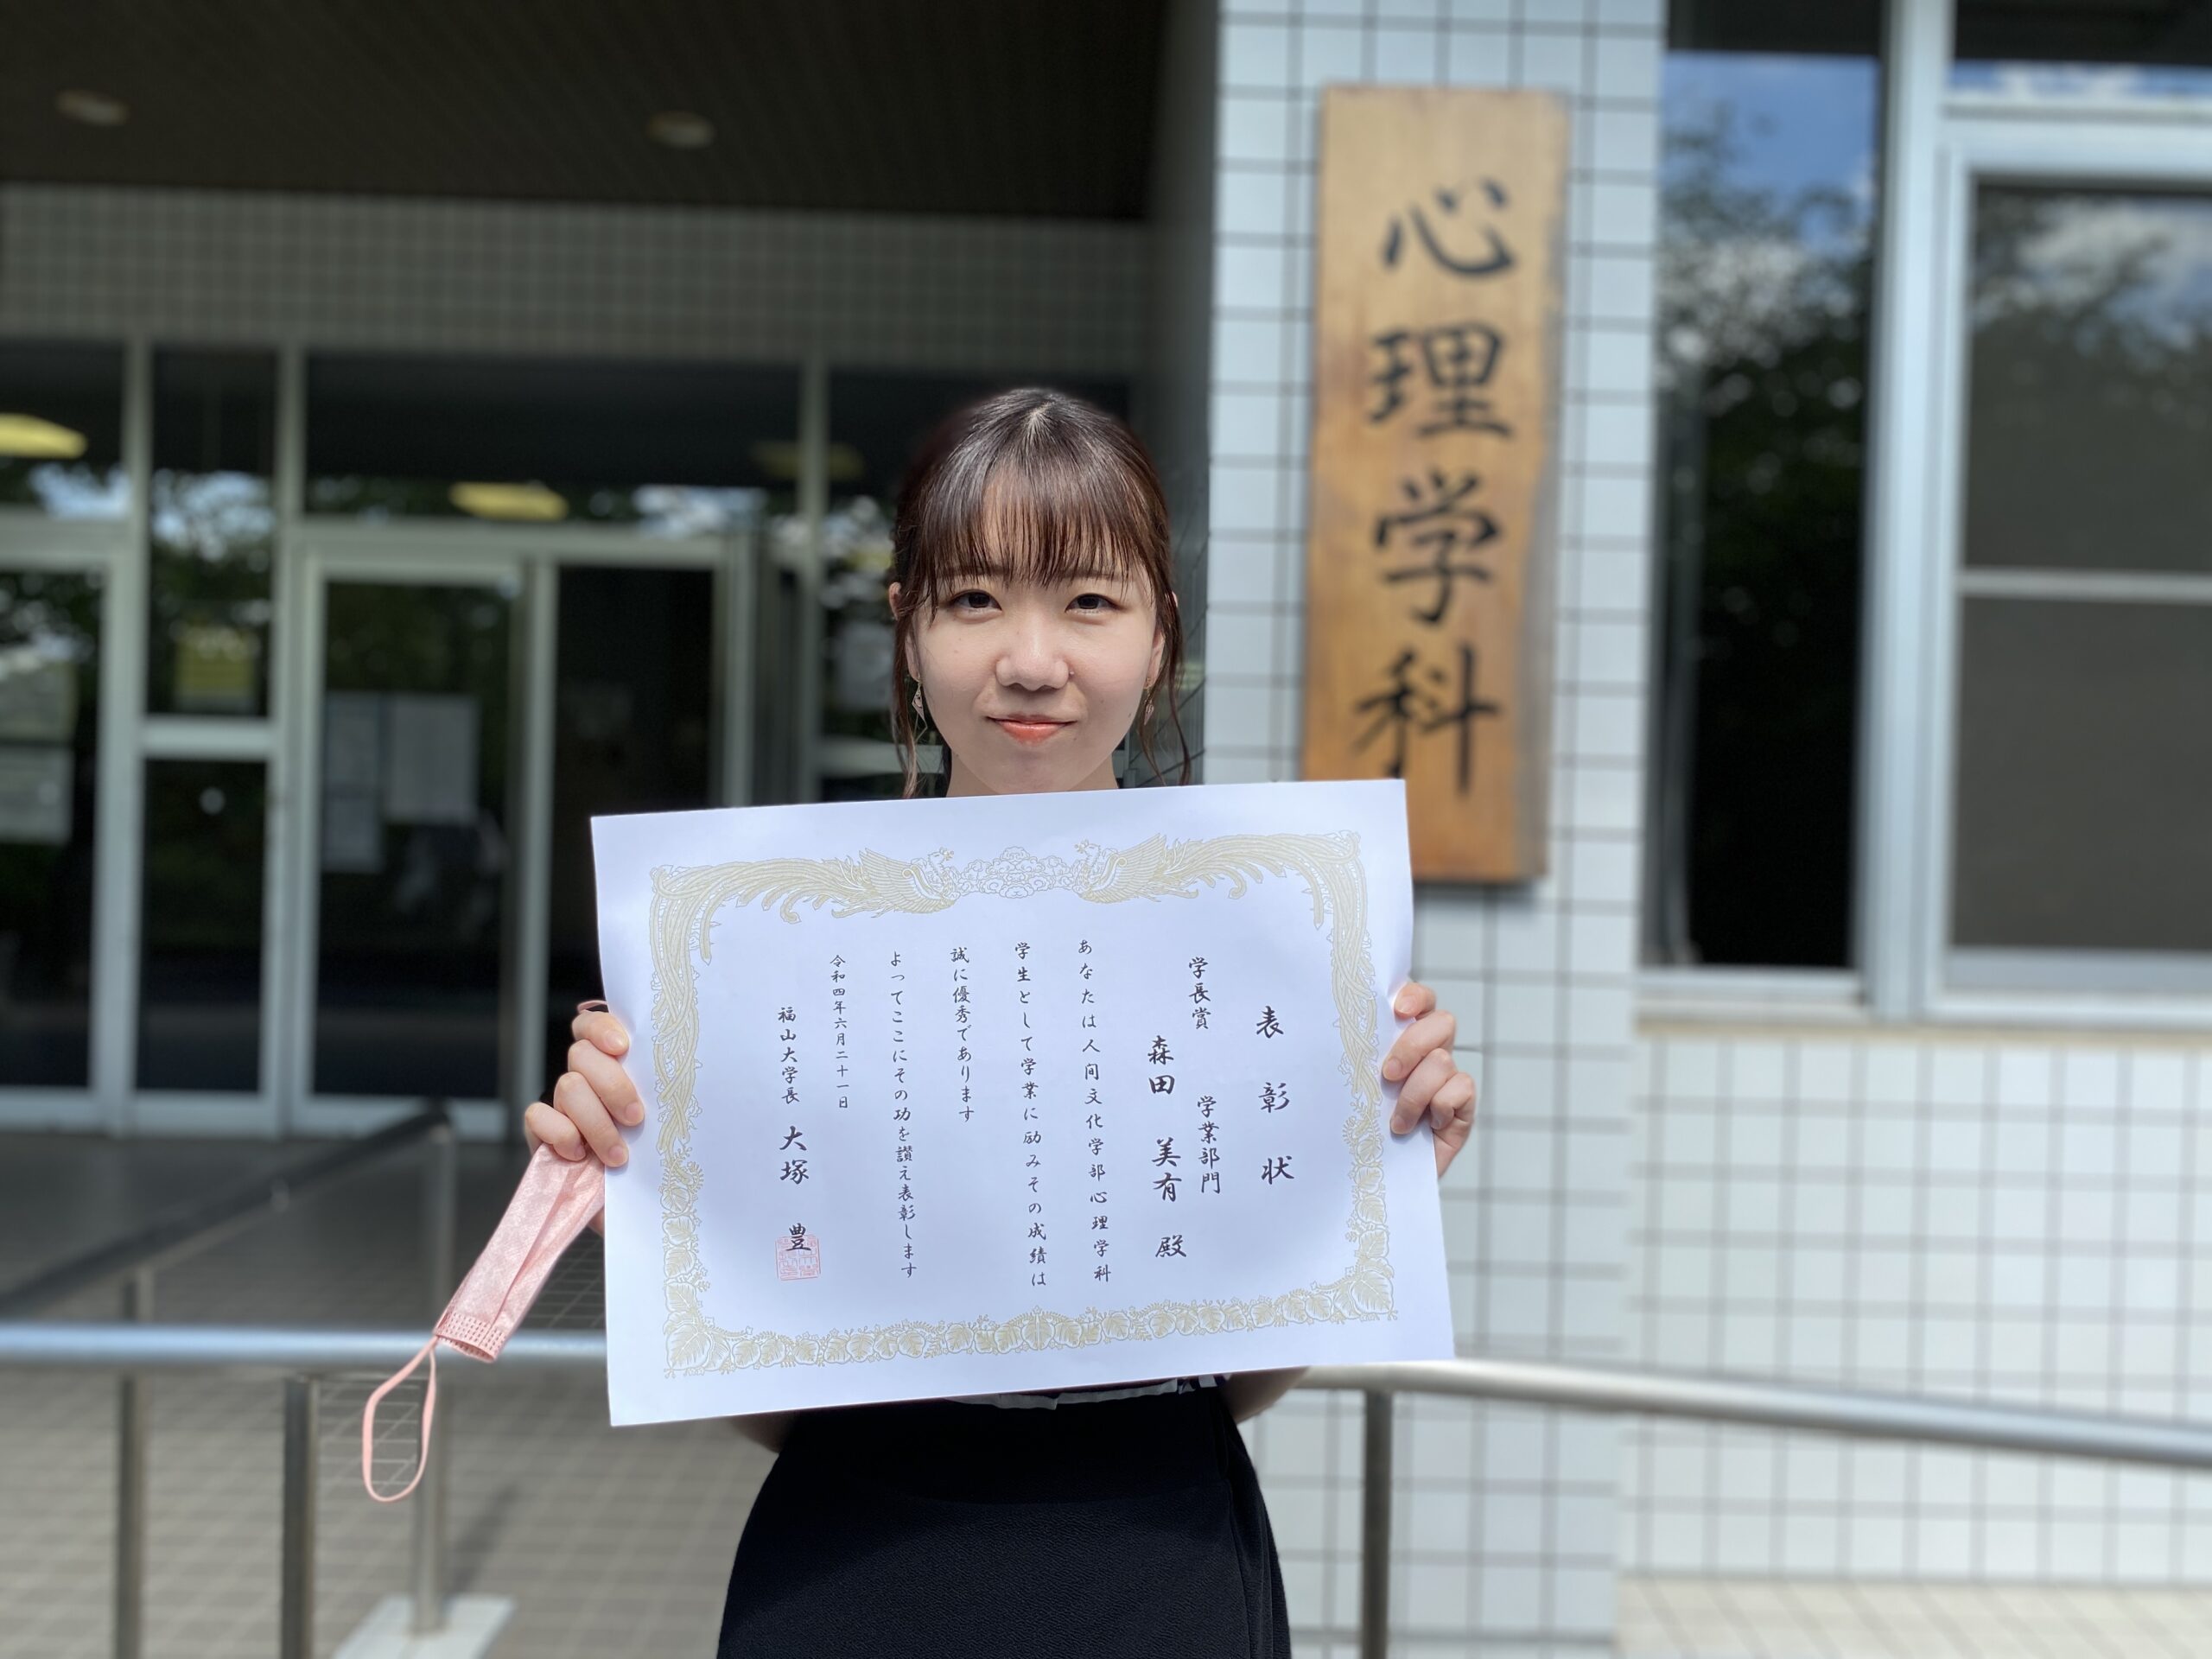 心理学科
表彰状
学長賞 学業部門
森田 美有 殿
あなたは人間文化学部心理学科
学生として学業に励みその成績は
誠に優秀であります
よってここにその功を讃え表彰します
令和四年六月二十一日
福山大学長 大塚 豊